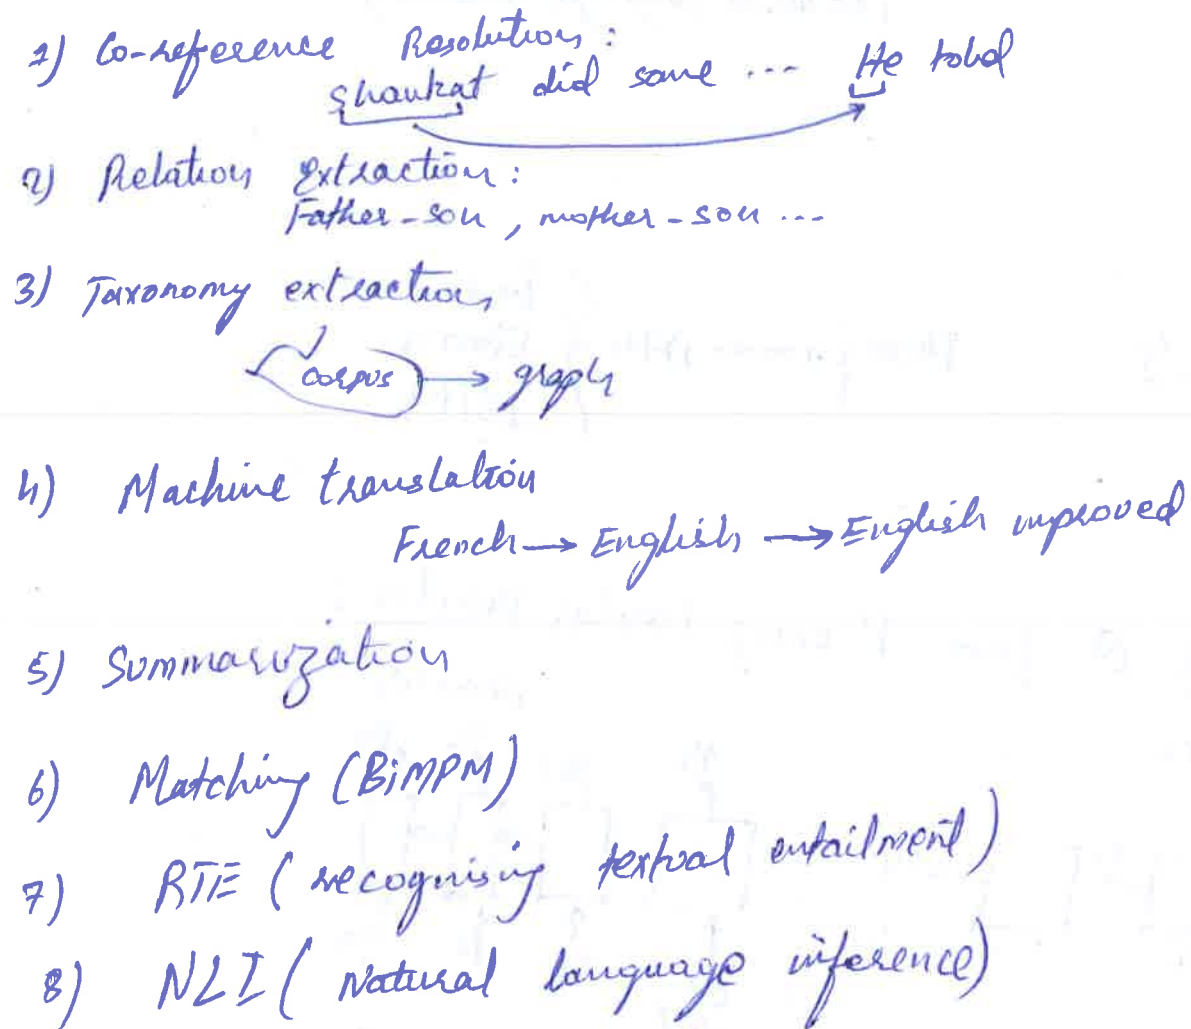 1) Co-reference Resolution:
Shaukat did some ... He told
2) Relation Extraction:
Father-son, mother-son ...
3) Taxonomy extraction
corpus → graph
4) Machine translation
French → English → English improved
5) Summarization
6) Matching (BiMPM)
7) RTE (recognising textual entailment)
8) NLI (Natural language inference)